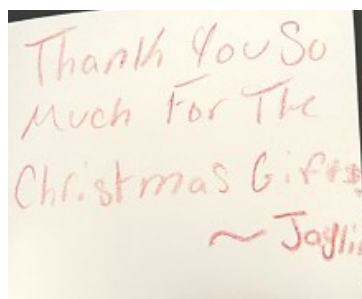 Thank You So
Much For The
Christmas Gifts
~ Jayli